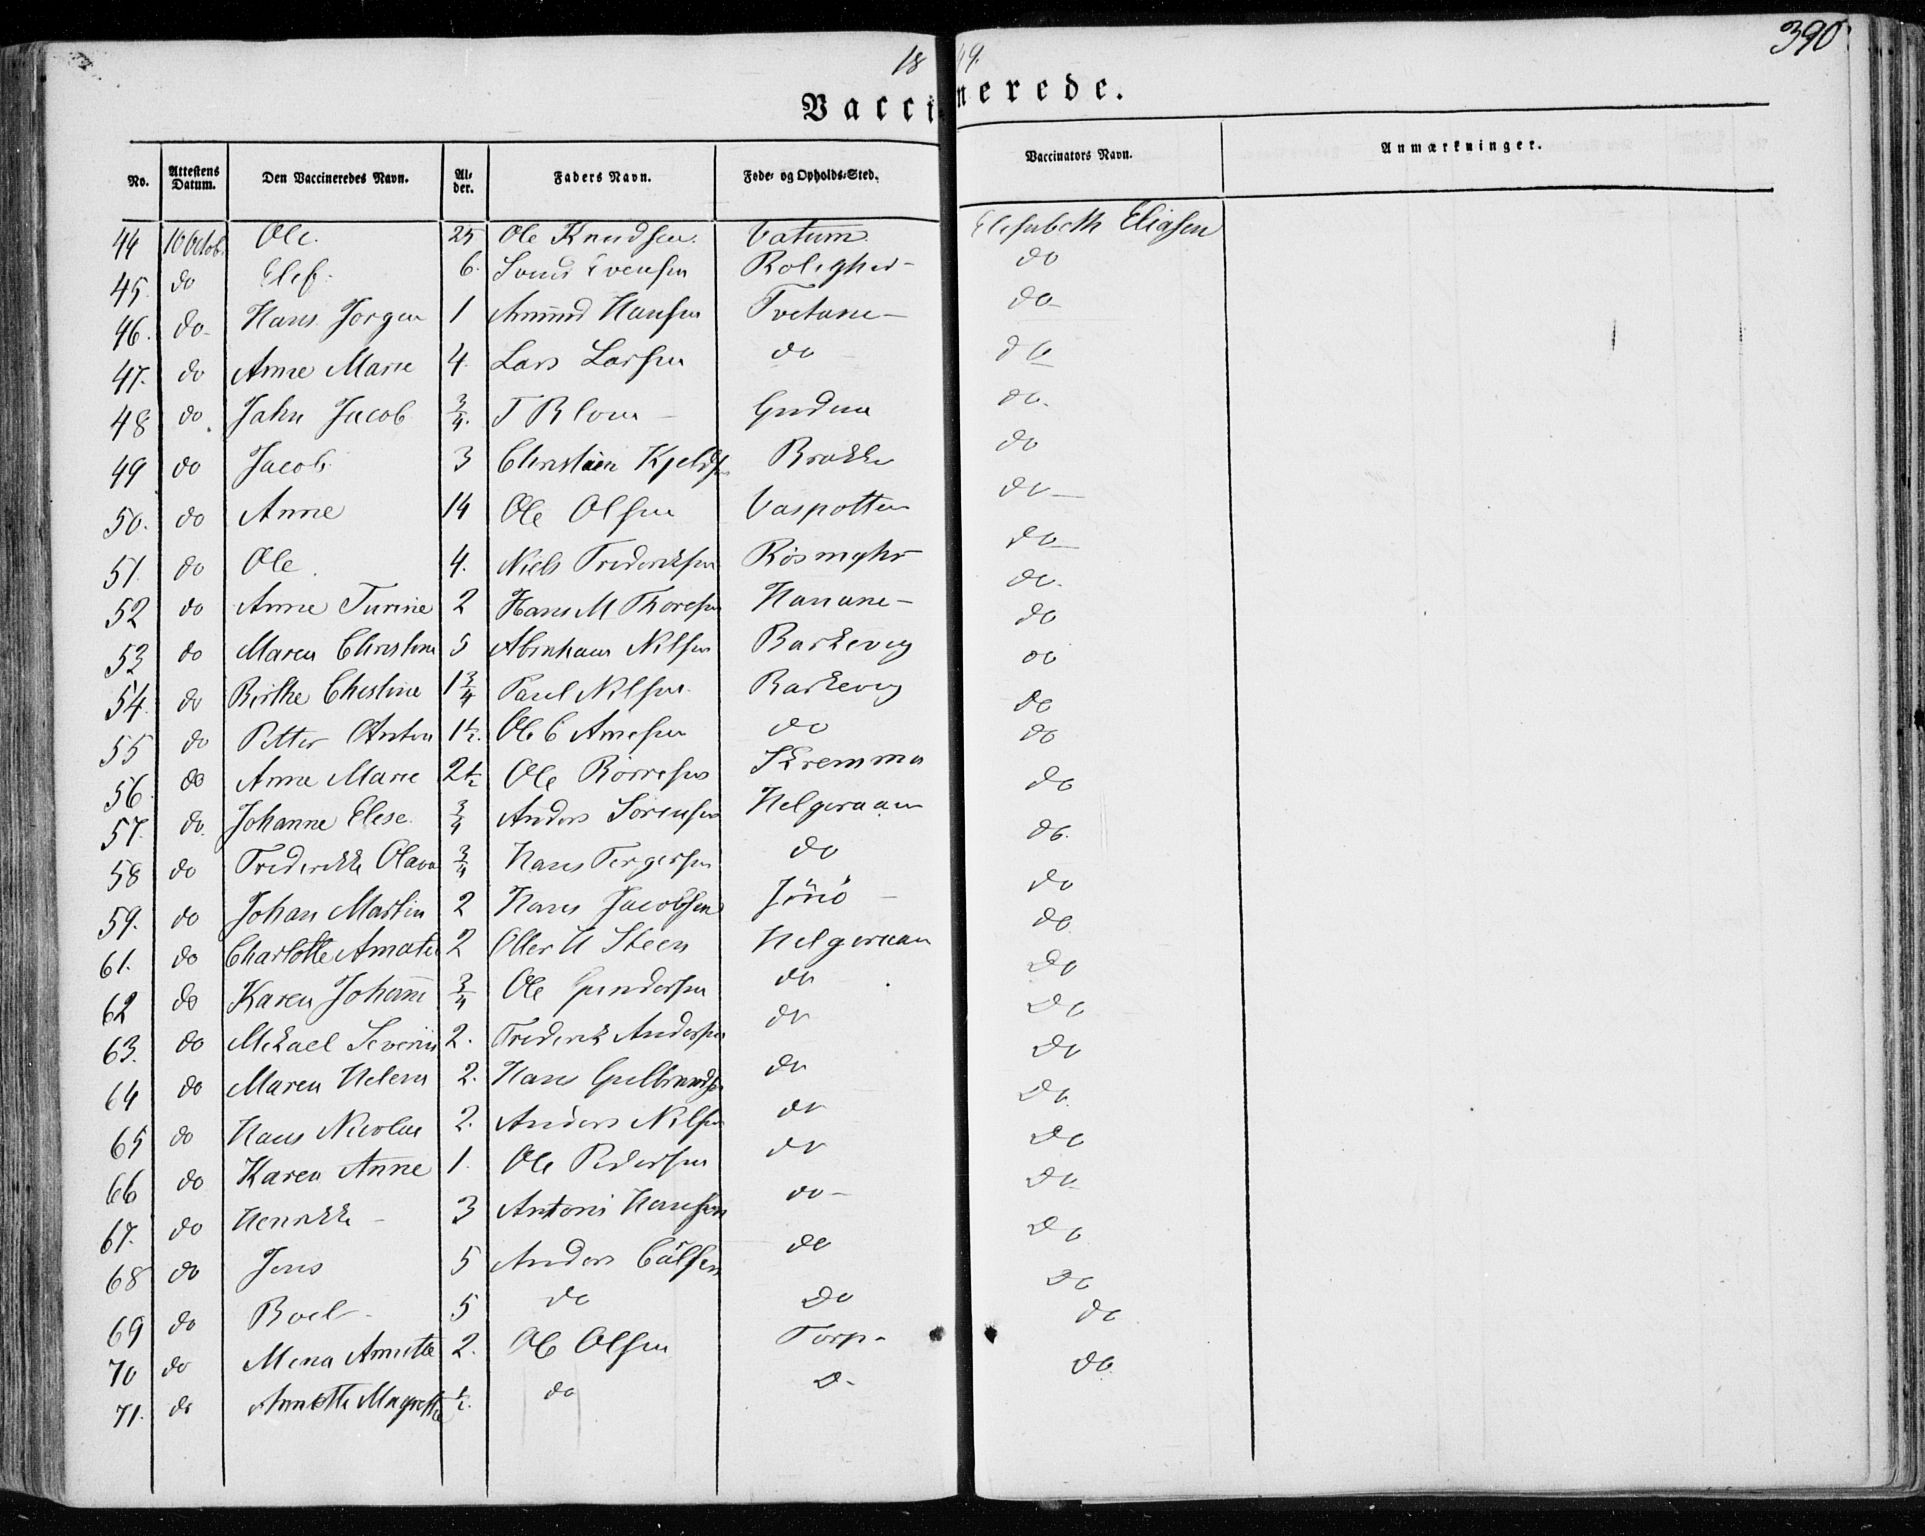 390
1849.
Vaccinerede.
No. Attestens Datum. Den Vaccineredes Navn. Alder. Faders Navn. Føde- og Opholds-Sted. Vaccinators Navn. Anmærkninger.
44 10 Octob. Ole. 25 Ole Knudsen. Vatum Elisabeth Eliasen
45. do Elef. 6. Svend Evensen do
46. do. Hans Jørgen 1 Amund Hansen Tvetane do
47. do Anne Marie 4. Lars Larsen do do
48 do. Jahn Jacob 3/4. T Blom Gudem do.
49 do Jacob 3 Christian Kjeldsen Brække do
50. do Anne 14 Ole Olsen Vaspotten do
51. do Ole. 4. Niels Frederiksen Rösmyhr do
52 do Anne Turine 2 Hans M Thoresen Hanane do.
53 do Maren Christine 5 Abraham Nilsen Barkevig do
54. do Birthe Chestine 1 3/4 Paul Nilsen. Barkevig do
55 do Petter Anton 1 1/2. Ole C Arnesen do do
56. do Anne Marie 2 1/2 Ole Börresen Skremma do
57. do. Johanne Elese 3/4 Anders Sörensen Helgeraaen do
58 do Frederikke Olava 3/4 Hans Tergersen do do.
59. do Johan Martin 2 Hans Jacobsen do
61. do Charlotte Amalie 2 Oller H Steen Helgeraaen do
62 do Karen Johanne 3/4 Ole Gundersen do do
63. do Mekael Severin 2. Frederik Andersen do do
64 do Maren Helena 2. Hans Gulbrandsen do do
65 do Hans Nicolai 2. Anders Nilsen do do
66 do Karen Anne 1. Ole Pedersen do do
67. do Henrikke 3 Antoni Hansen do do
68 do Jens 5 Anders do do
69 do Boel 5 do do do
70 do Mina Annette 2. Ole Olsen Torp. do
71. do Annette Magrethe 1/2. do D. do